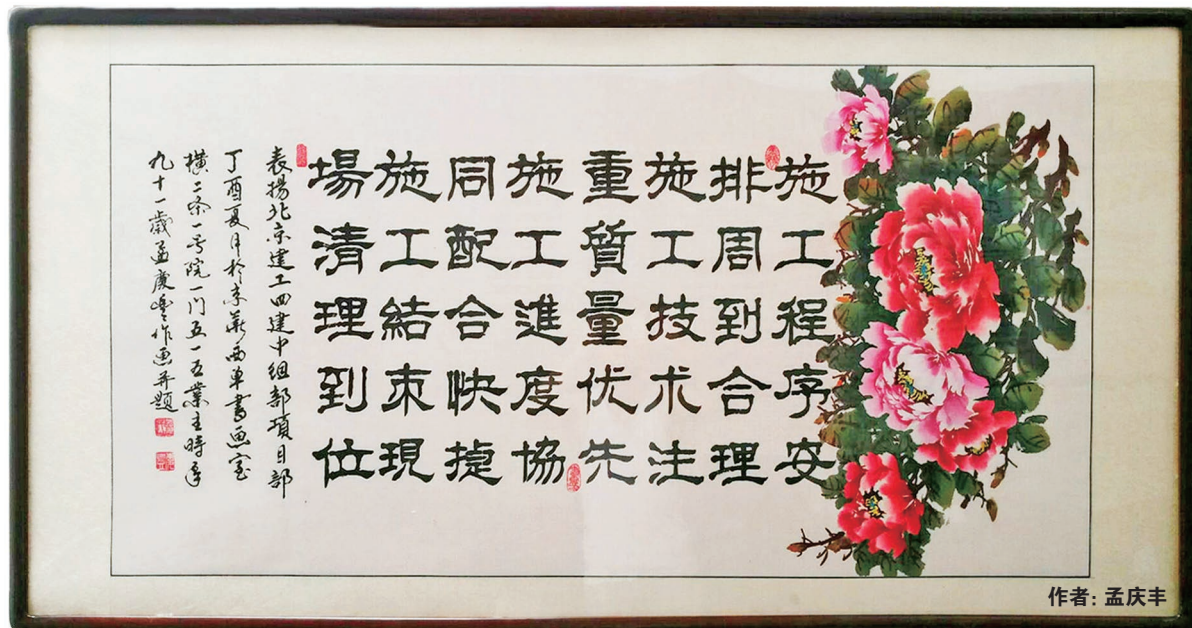 施工程序安
排周到合理
施工技术注
重質量优先
施工進度協
同配合快捷
施工結束現
場清理到位
表揚北京建工四建中组部項目部
丁酉夏月於京華西單書画室
橫二条一号院一门五一五業主時年
九十一歲孟慶豐作画并題
作者: 孟庆丰